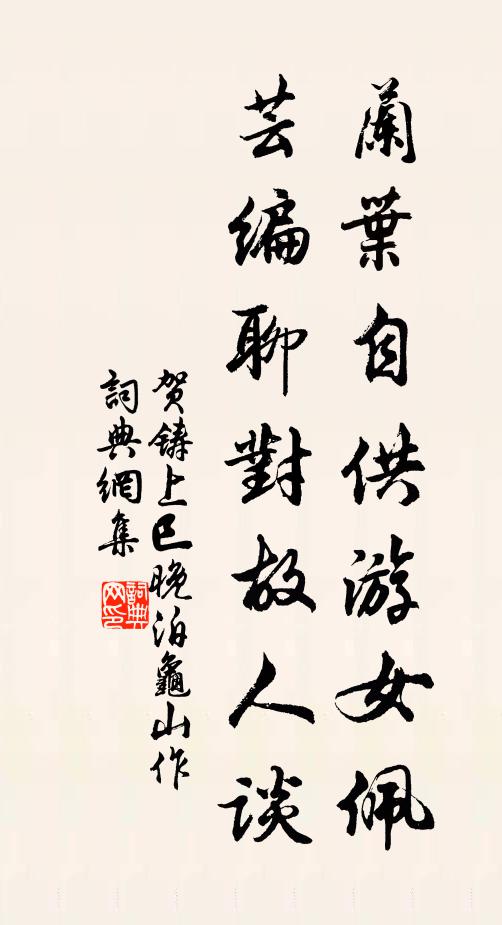 蘭葉自供游女佩
芸編聊對故人談
贺鑄上巳晚泊龜山作
詞典網集
詞典网印